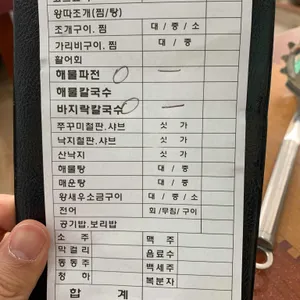 왕따조개(찜/탕)
조개구이.찜 대 / 중 / 소
가리비구이.찜 대 / 중
활어회
해물파전
해물칼국수
바지락칼국수
쭈꾸미철판.샤브 싯 가
낙지철판.샤브 싯 가
산낙지 싯 가
해물탕 대 / 중
매운탕 대 / 중
왕새우소금구이 대 / 중 / 소
전어 회 /무침/ 구이
공기밥.보리밥
소 주 맥 주
막걸리 음료수
동동주 백세주
청 하 복분자
합 계